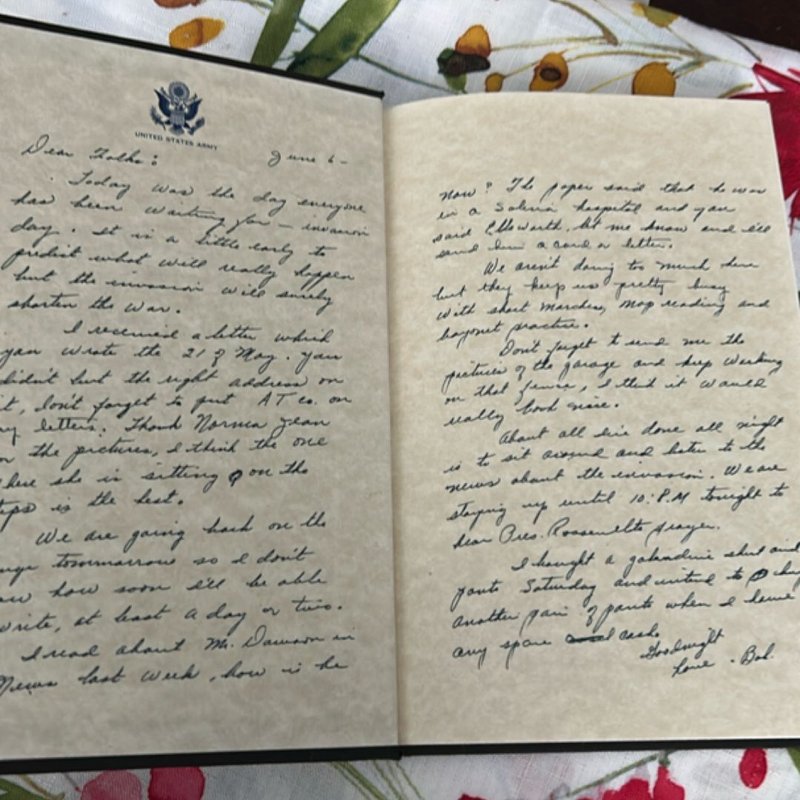 UNITED STATES ARMY
June 6-
Dear Folks:
Today was the day everyone
has been waiting for - invasion
day. It is a little early to
predict what will really happen
but the invasion will surely
shorten the war.
I received a letter which
you wrote the 21 of May. You
didn't put the right address on
it, don't forget to put AT co. on
my letters. Thank Norma Jean
the pictures, I think the one
where she is sitting on the
steps is the best.
We are going back on the
tommarrow so I don't
how soon I'll be able
write, at least a day or two.
I read about Mr. Dawson in
News last week, how is he
now? The paper said that he was
in a Salina hospital and you
said Ellsworth, let me know and I'll
send him a card or letter.
We aren't doing too much here
but they keep us pretty busy
with short marches, map reading and
bayonet practice.
Don't forget to send me the
pictures of the garage and keep working
on that fence, I think it would
really look nice.
About all we've done all night
is to sit around and listen to the
news about the invasion. We are
staying up until 10:P.M tonight to
hear Pres. Roosevelts prayer.
I bought a gabardine shirt and
pants Saturday and intend to buy
another pair of pants when I have
any spare cash.
Goodnight
Love - Bob.